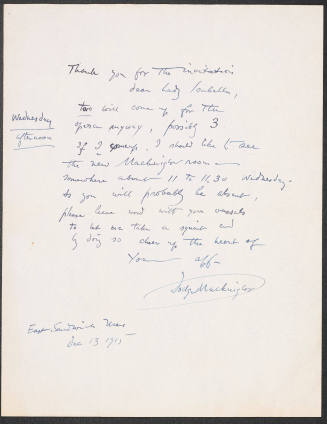 Thank you for the invitation
dear Lady Isabella,
Wednesday
afternoon
two will come up for the
opening anyway, possibly 3
If I come up I should like to see
the new Macknight room
somewhere about 11 to 11.30 Wednesday.
As you will probably be absent,
please leave word with your vassals
to let me take a squint and
by doing so cheer up the heart of
Your aff
Dodge Macknight
East Sandwich Mass
Dec 13 1915